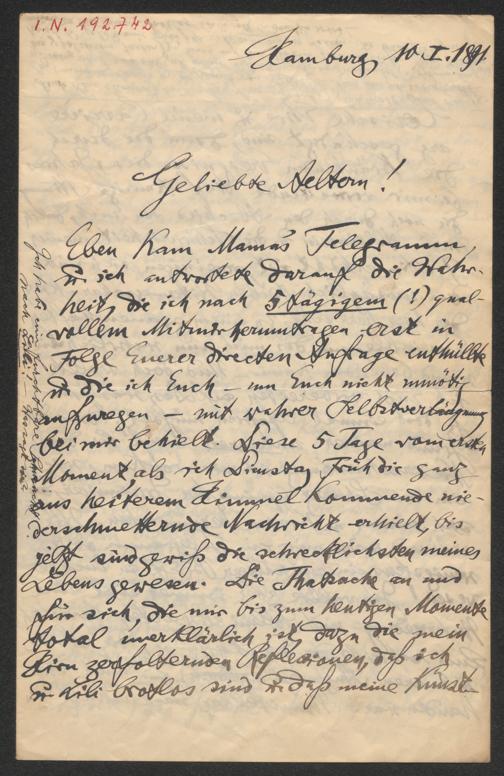 I.N. 192742
Hamburg, 10. I. 1891.
Geliebte Aeltern!
Eben kam Mama's Telegramm,
u. ich antwortete darauf die Wahr-
heit, die ich nach 5tägigem (!) qual-
vollem Mitmirherumtragen erst in
Folge Euerer directen Anfrage enthüllte
u. die ich Euch – um Euch nicht unnötig
aufzuregen – mit wahrer Selbstverläugnung
bei mir behielt. Diese 5 Tage vom ersten
Moment, als ich Dienstag Früh die ganz
aus heiterem Himmel kommende nie-
derschmetternde Nachricht erhielt, bis
jetzt sind gewiß die schrecklichsten meines
Lebens gewesen. Die Thatsache an und
für sich, die mir bis zum heutigen Momente
total unerklärlich ist, dazu die mein
Hirn zerfolternden Reflexionen, daß ich
u. Lili brotlos sind u. daß meine Künst-
Ich habe eine furchtbare Sehnsucht
nach Lili!